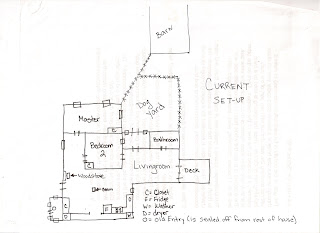 Barn
CURRENT
SET-UP
Dog
Yard
Master
C
Bedroom
2
Bathroom
Livingroom
Deck
Woodstove
C= Closet
F= Fridge
W= Washer
D= dryer
O= old Entry (is sealed off from rest of house)